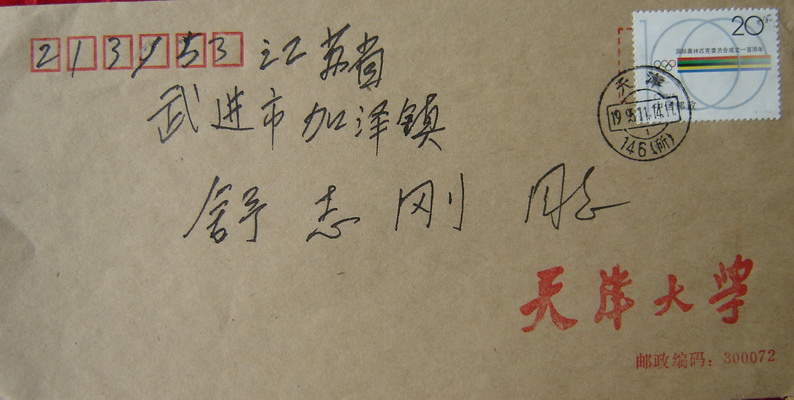 213153 江苏省
武进市加泽镇
舒志刚 同志
20分
国际奥林匹克委员会成立一百周年
中国邮政
天津
1995.11.14.11
146(所)
天津大学
邮政编码：300072